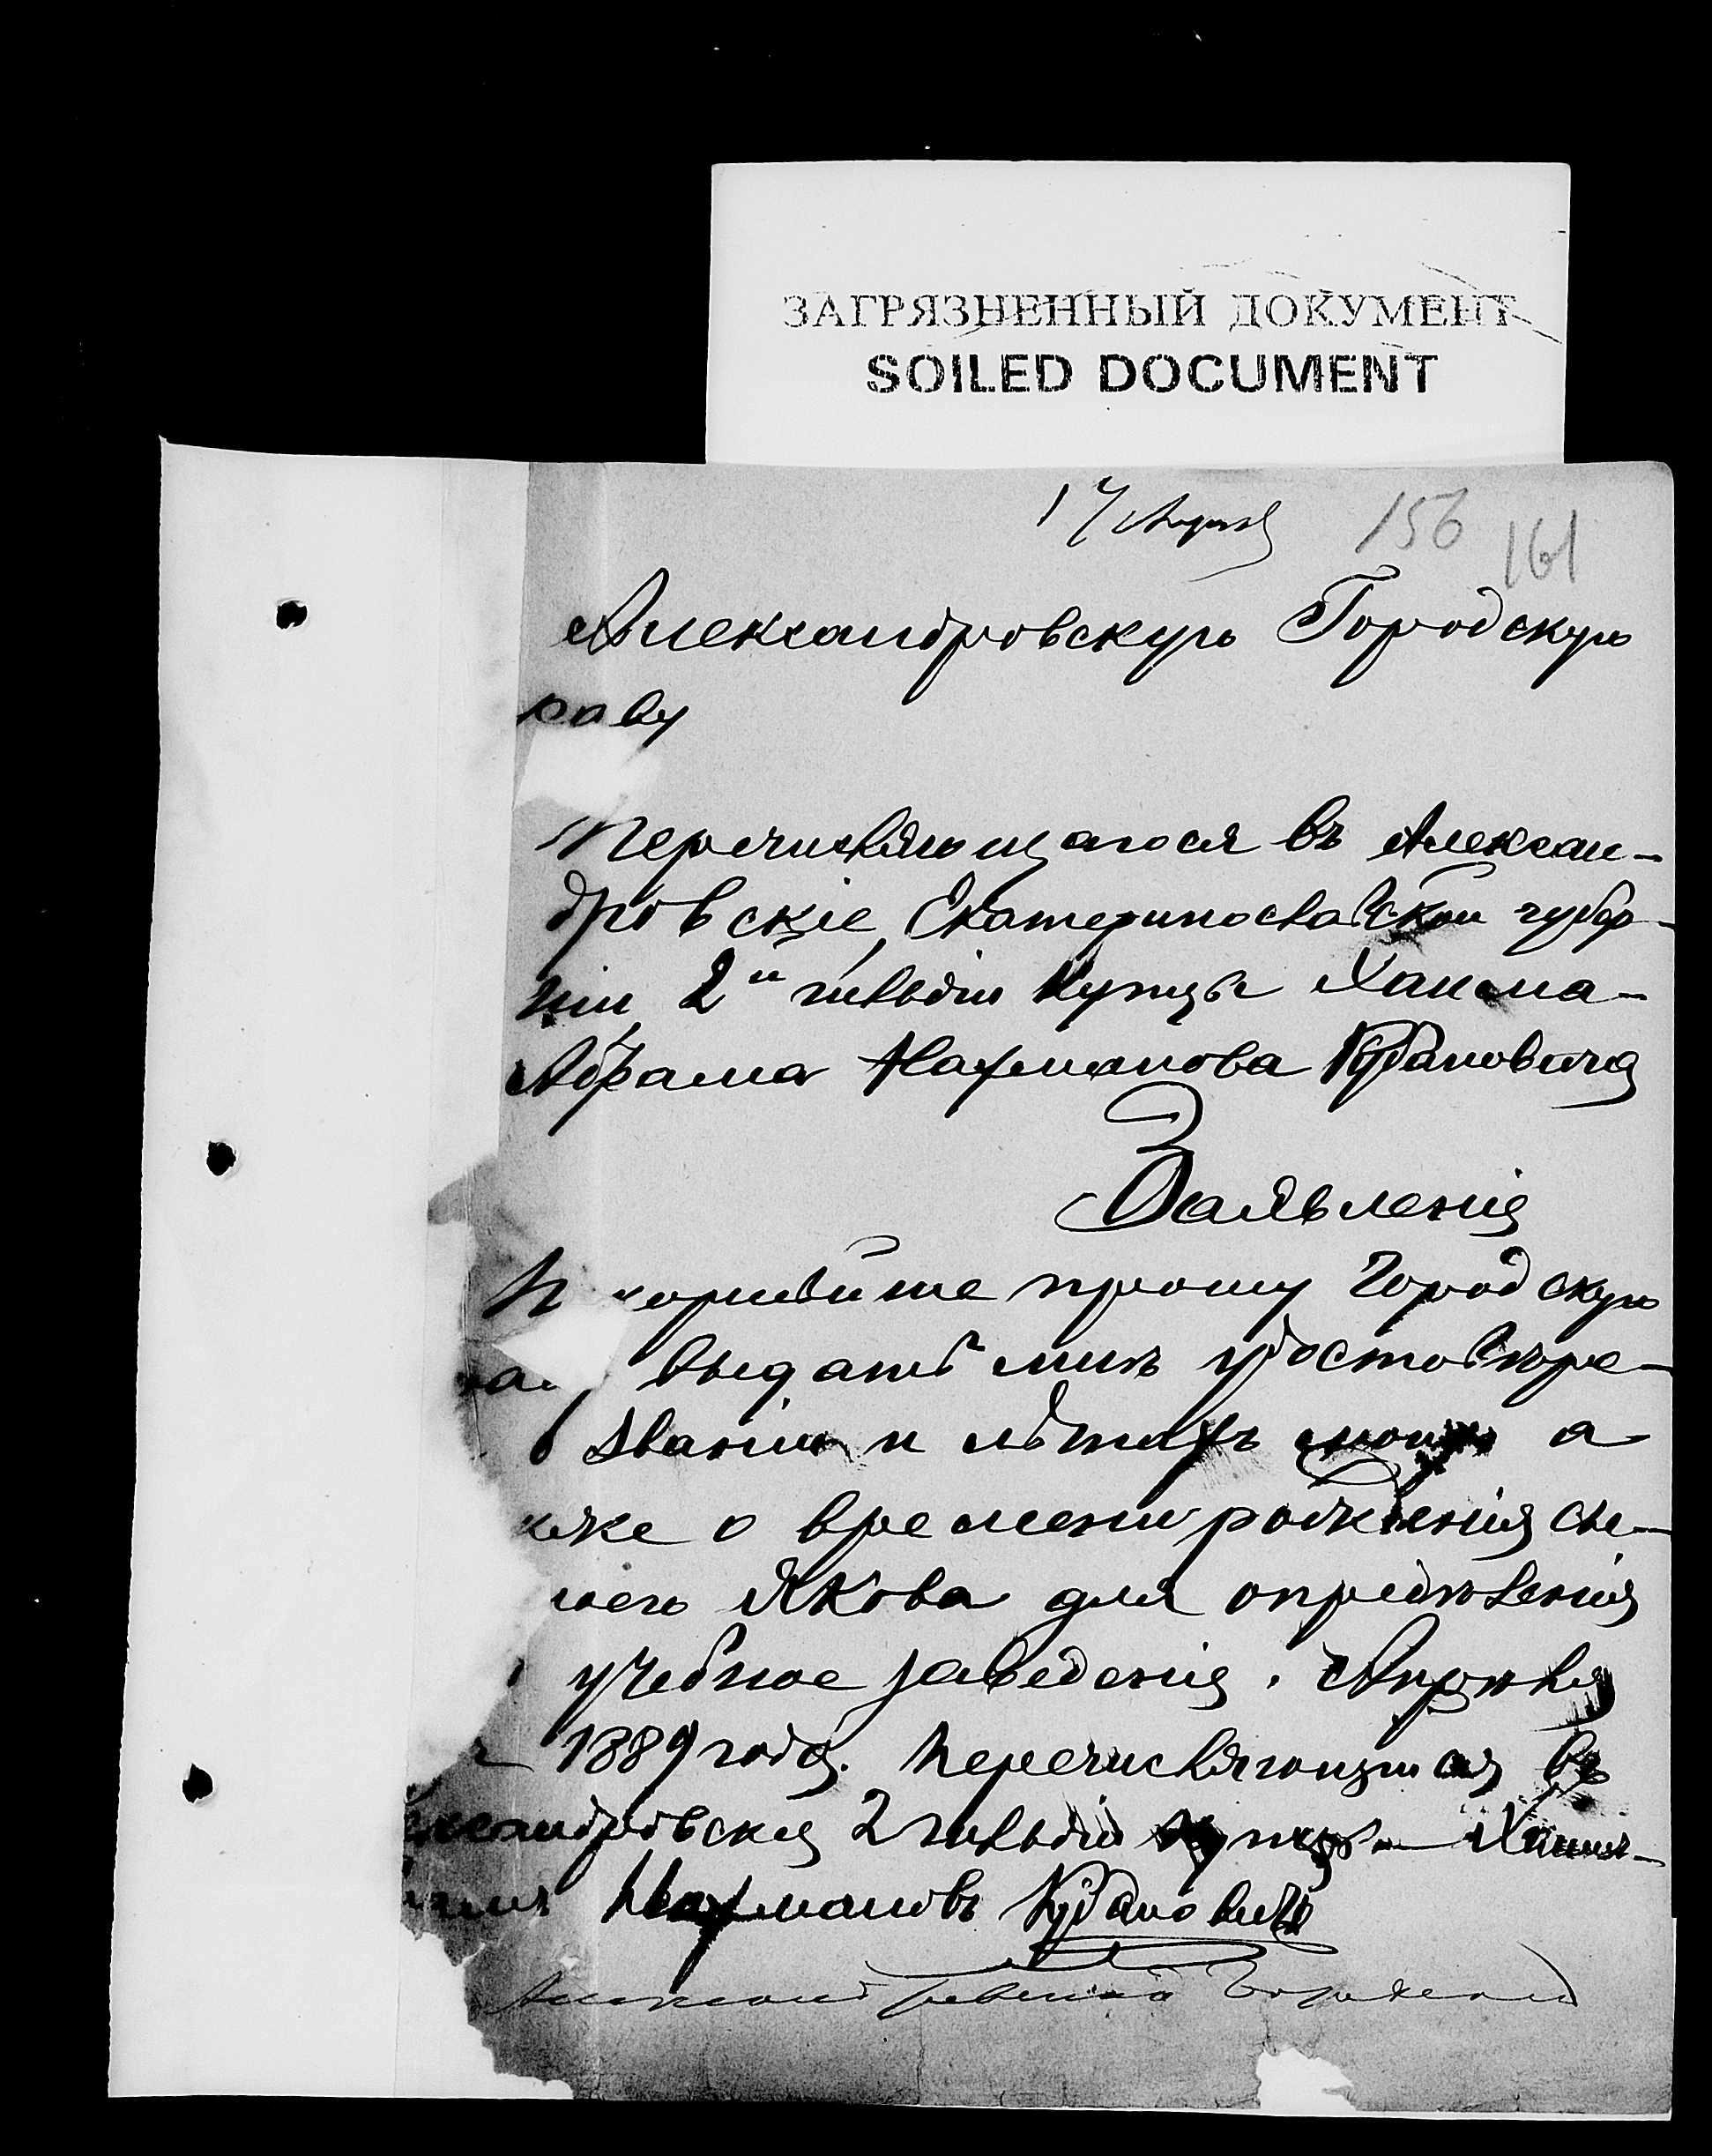 ЗАГРЯЗНЕННЫЙ ДОКУМЕНТ
SOILED DOCUMENT
17 Апреля
156 161
Александровскую Городскую
раву
Перечисляющагося въ Алексан-
дровскіе, Екатеринославской губер-
ніи 2й гильдіи купца Хаима-
Абрама Нахманова Кудановича
Заявленія
П корнейше прошу Городскую
выдать мнѣ удостовѣре-
о званіи и лѣтахъ моихъ а
кже о времени рожденія сы-
моего Якова для опредѣленія
учебное заведенія. Апрѣля
1889 года. Перечисляющійся въ
лександровскія 2 гильдіи купецъ Хаимъ-
Нахмановъ Кудановичъ
Александровской Городской